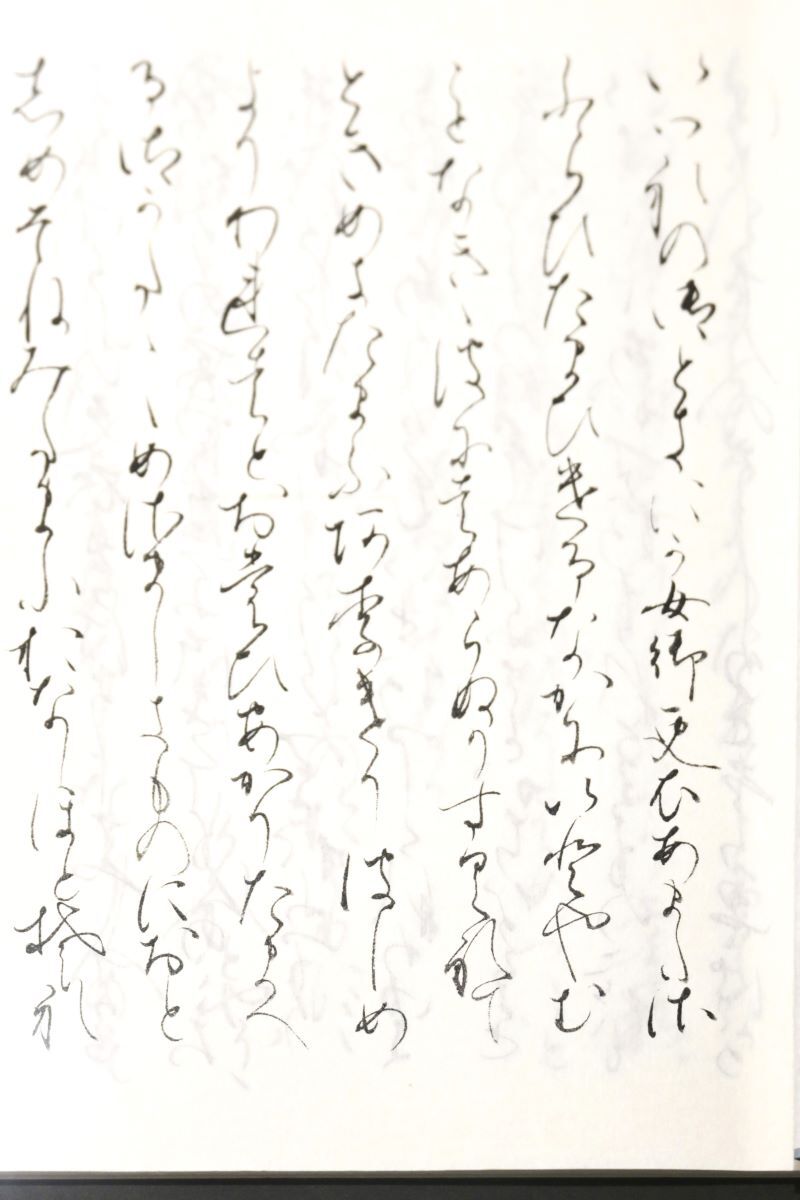 いつれの御ときにか女御更衣あまたさ
ふらひたまひきるなかにいとやむ
ことなきゝはにはあらぬかすくれて
ときめきたまふありきりはしめ
よりわれはとおもひあかりたまへ
る御かたゝゝめさましきものにおと
しめそねみたまふおなしほとそれ